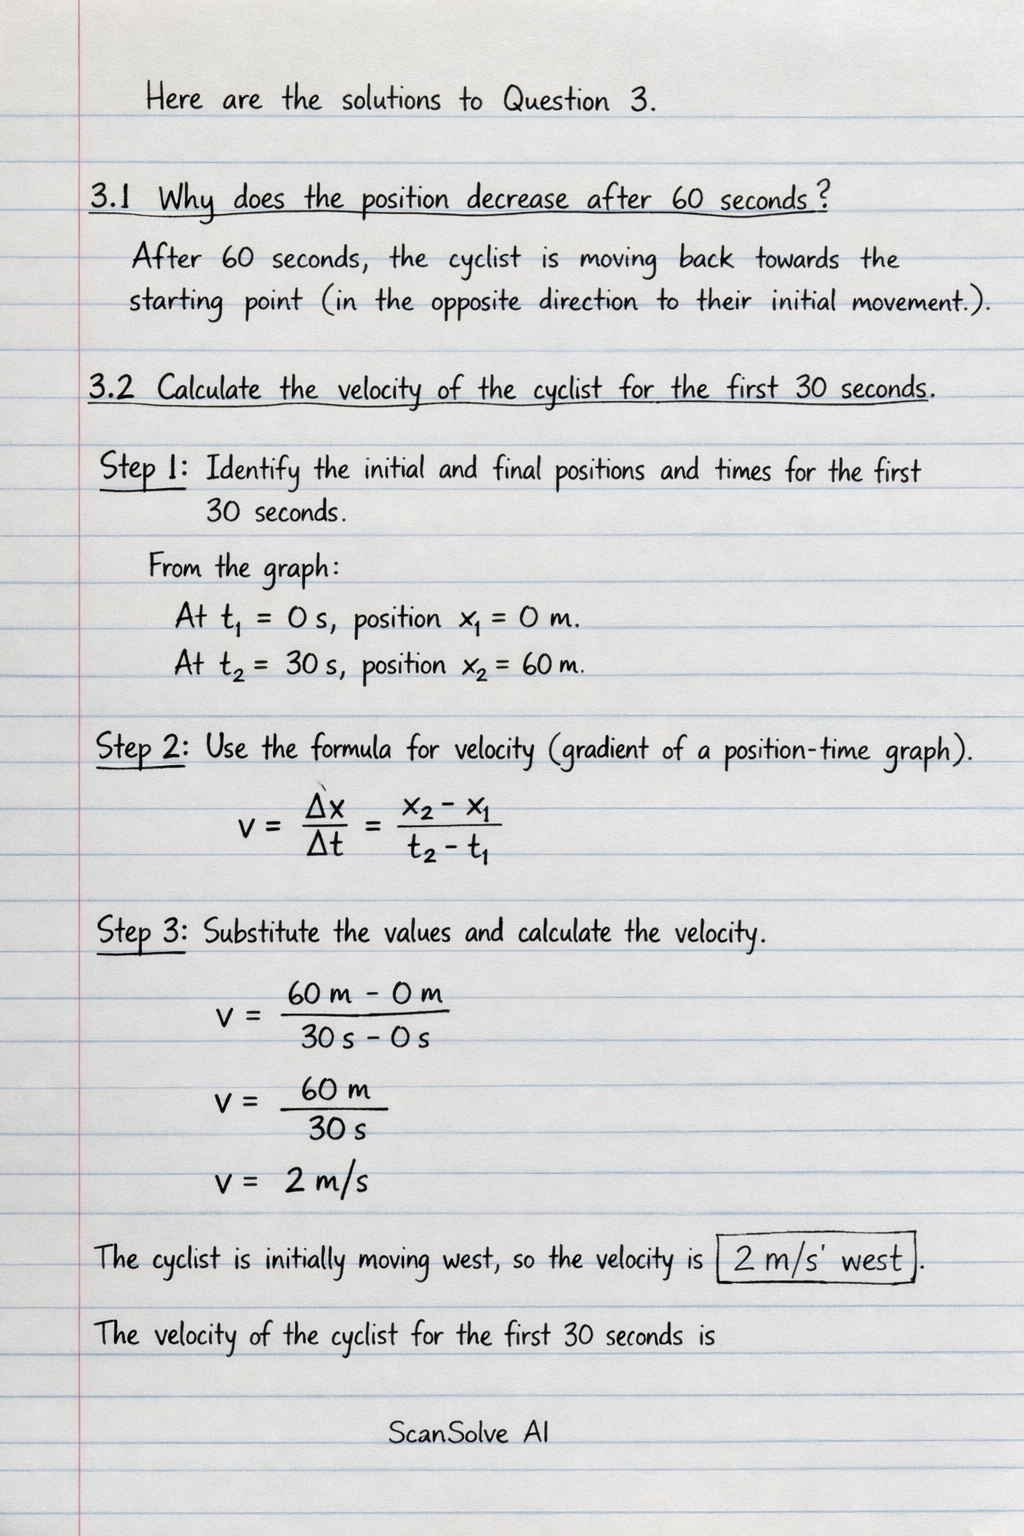 Here are the solutions to Question 3.
3.1 Why does the position decrease after 60 seconds?
After 60 seconds, the cyclist is moving back towards the
starting point (in the opposite direction to their initial movement.).
3.2 Calculate the velocity of the cyclist for the first 30 seconds.
Step 1: Identify the initial and final positions and times for the first
30 seconds.
From the graph:
At t₁ = 0 s, position x₁ = 0 m.
At t₂ = 30 s, position x₂ = 60 m.
Step 2: Use the formula for velocity (gradient of a position-time graph).
v = Δx/Δt = (x₂ - x₁)/(t₂ - t₁)
Step 3: Substitute the values and calculate the velocity.
v = (60 m - 0 m)/(30 s - 0 s)
v = 60 m/30 s
v = 2 m/s
The cyclist is initially moving west, so the velocity is 2 m/s' west.
The velocity of the cyclist for the first 30 seconds is
ScanSolve AI